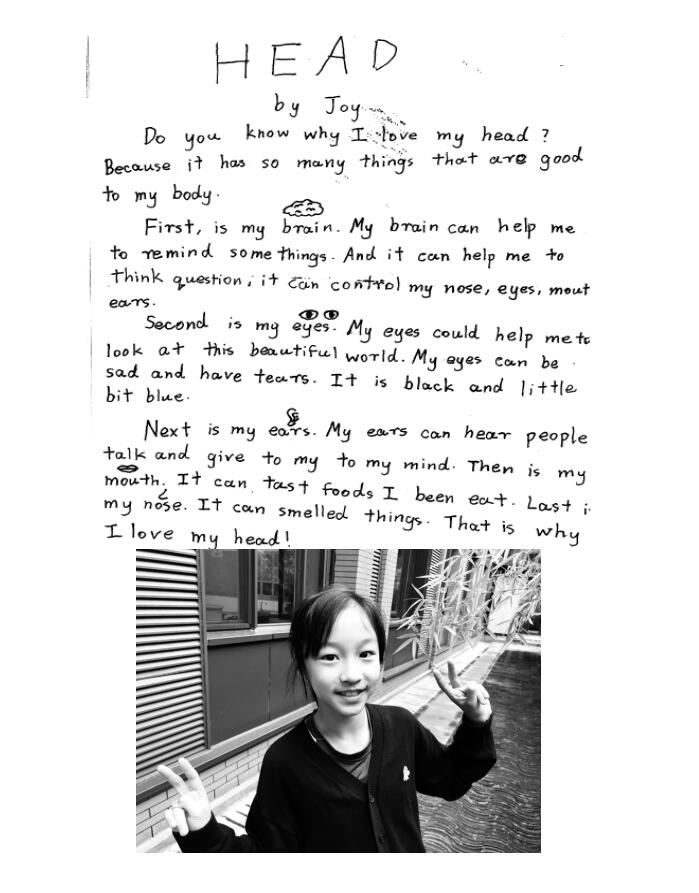 HEAD
by Joy
Do you know why I love my head?
Because it has so many things that are good
to my body.
First, is my brain. My brain can help me
to remind somethings. And it can help me to
think question, it can control my nose, eyes, mout
ears.
Second is my eyes. My eyes could help me to
look at this beautiful world. My eyes can be
sad and have tears. It is black and little
bit blue.
Next is my ears. My ears can hear people
talk and give to my to my mind. Then is my
mouth. It can tast foods I been eat. Last i
my nose. It can smelled things. That is why
I love my head!